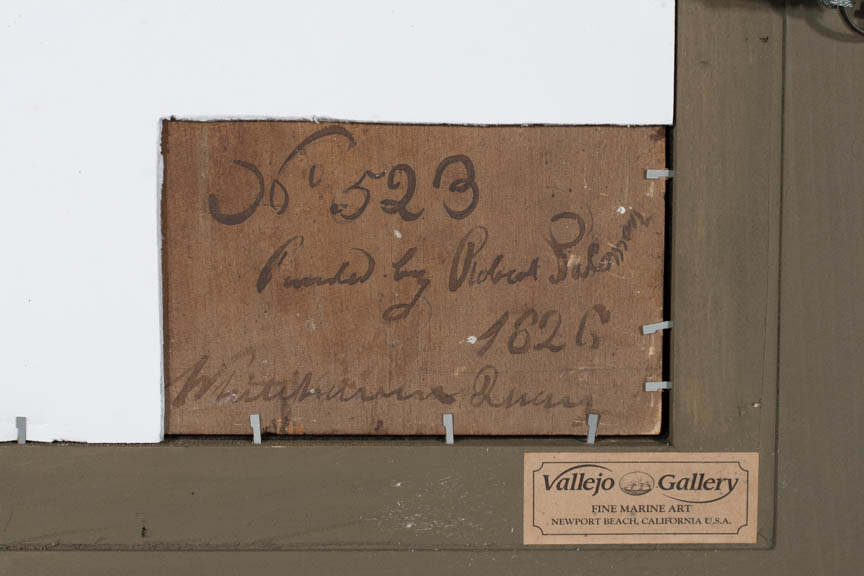 No 523
Painted by Robert Salmon
1826
Whitehaven Quay
Vallejo Gallery
FINE MARINE ART
NEWPORT BEACH, CALIFORNIA U.S.A.